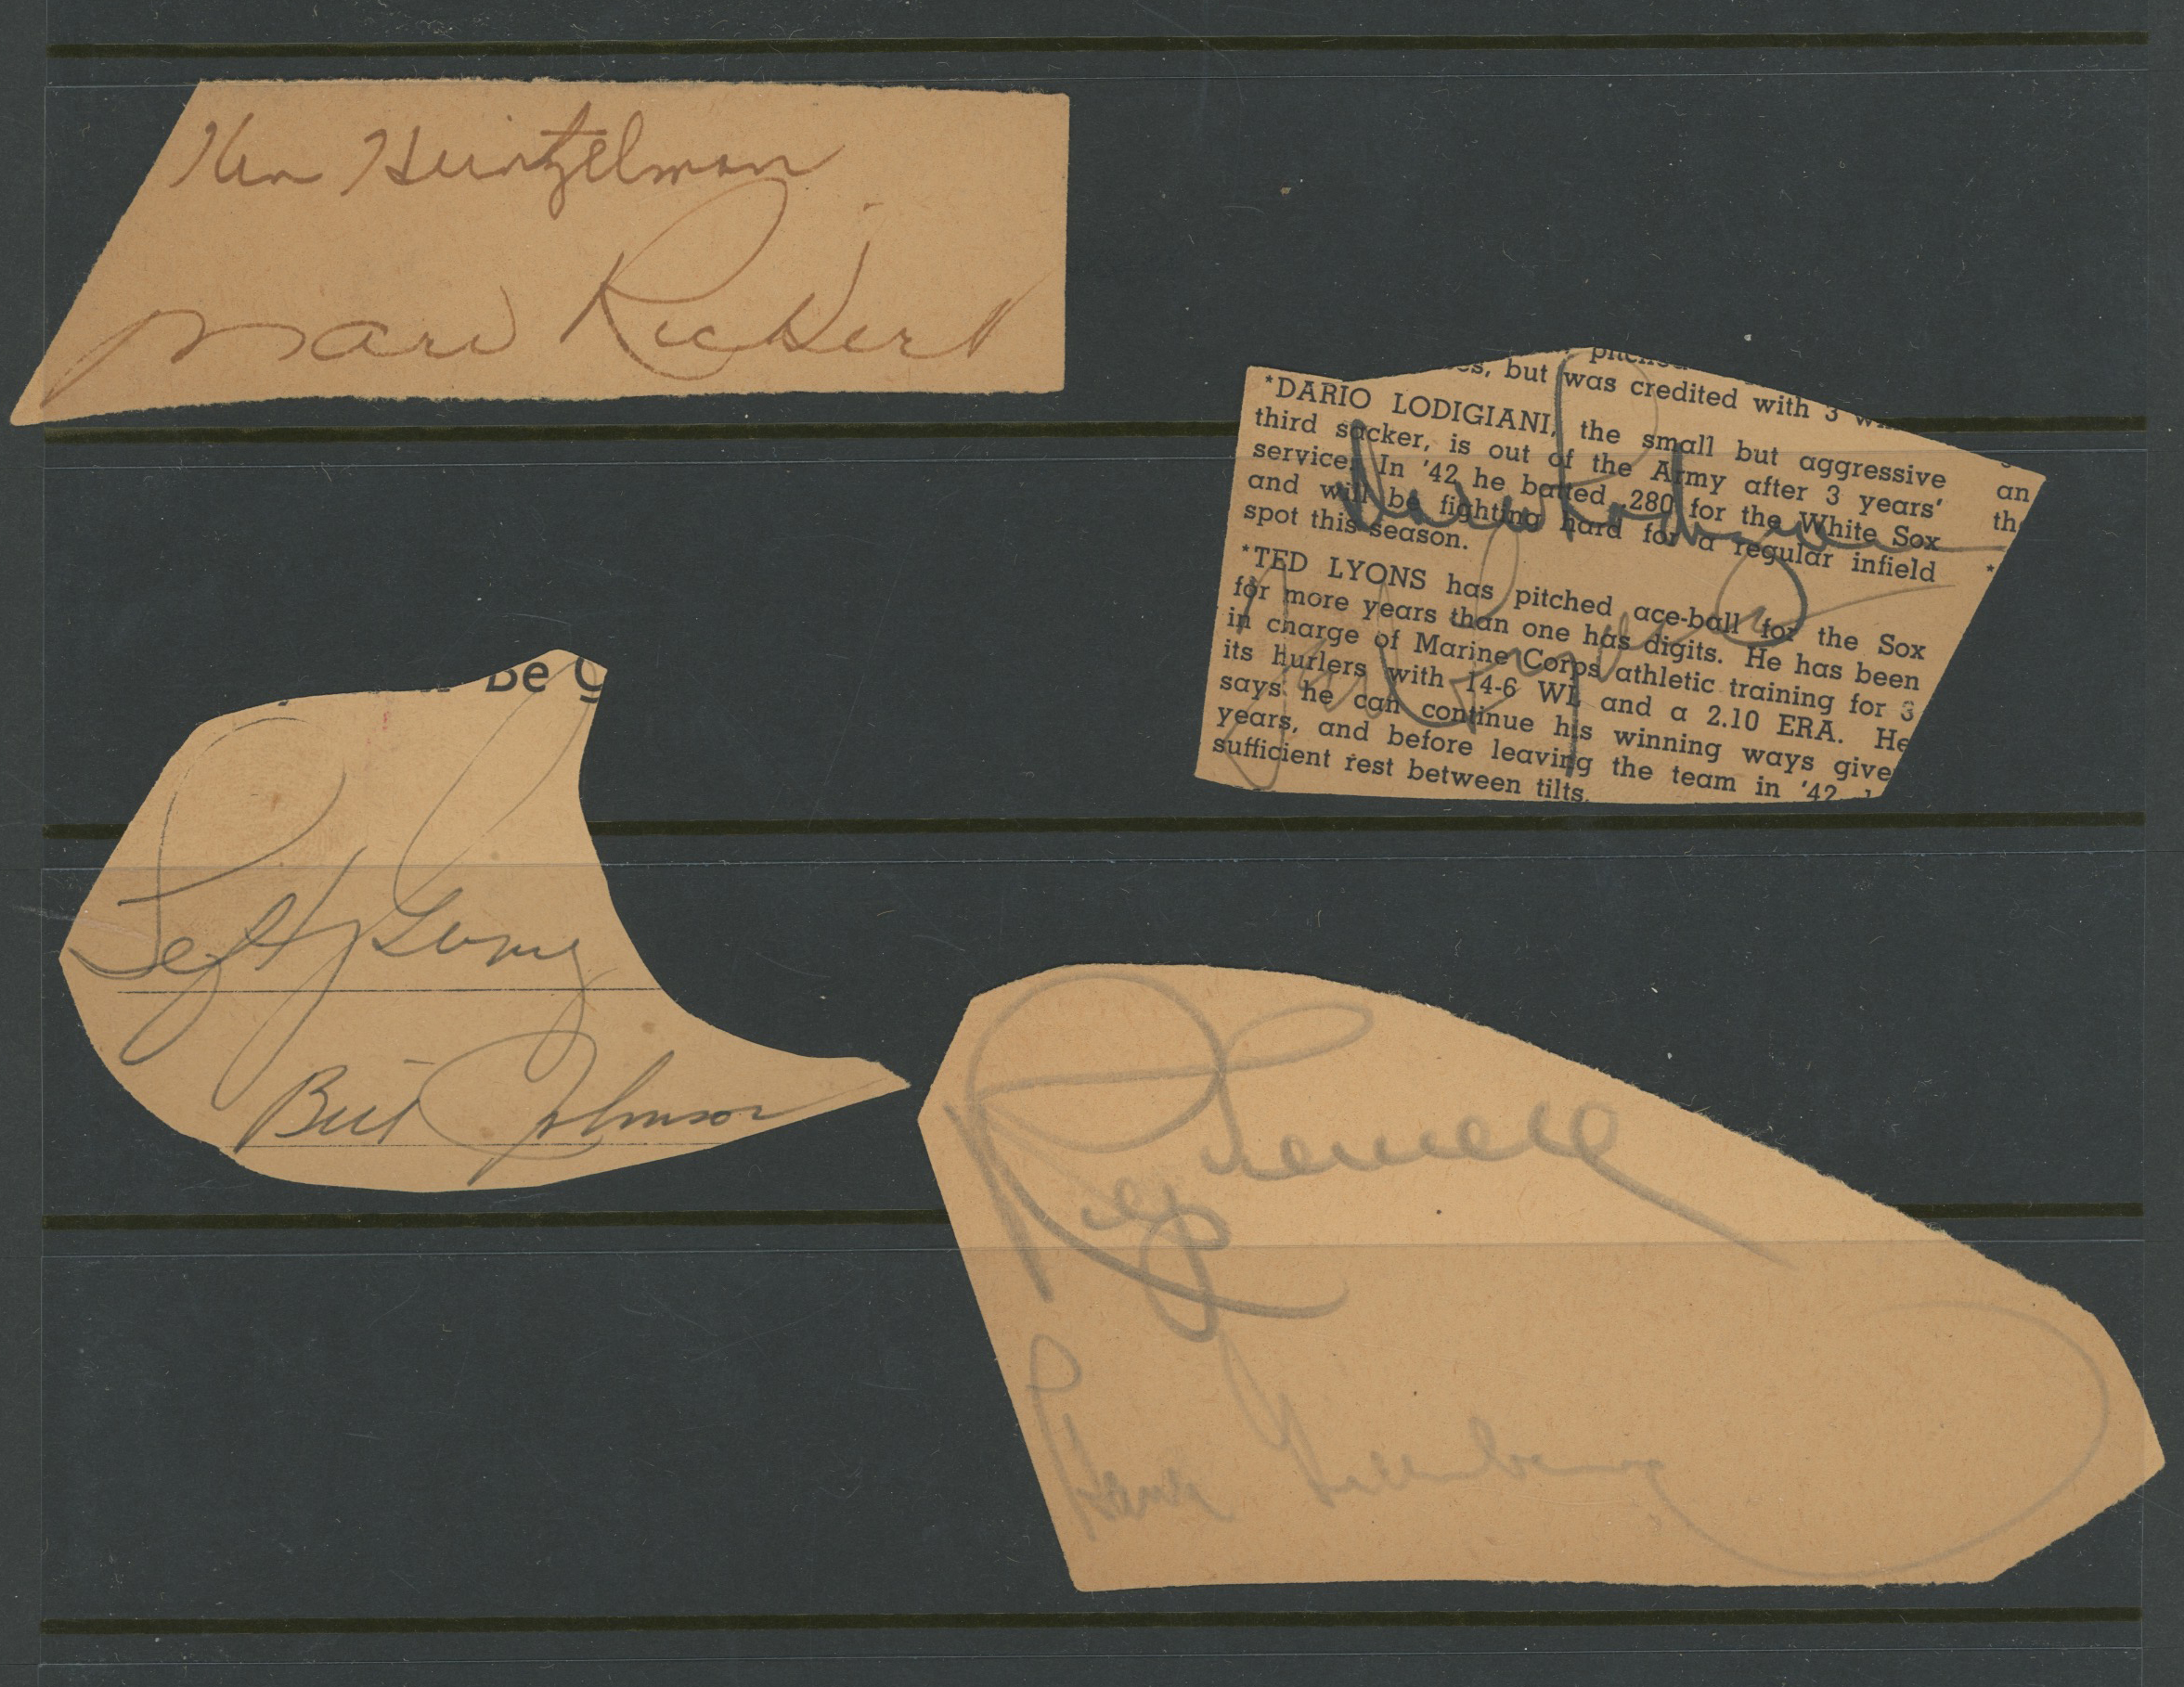 Ken Heintzelman
Marv Rickert
but was credited with 3
*DARIO LODIGIANI, the small but aggressive
third sacker, is out of the Army after 3 years'
service. In '42 he batted .280 for the White Sox
and will be fighting hard for a regular infield
spot this season.
an
*
Dario Lodigiani
*TED LYONS has pitched ace-ball for the Sox
for more years than one has digits. He has been
in charge of Marine Corps athletic training for 3
its hurlers with 14-6 WL and a 2.10 ERA. He
says he can continue his winning ways give
years, and before leaving the team in '42
sufficient rest between tilts.
Ted Lyons
Be
Lefty Gomez
Bill Johnson
Rip Sewell
Hank Greenberg